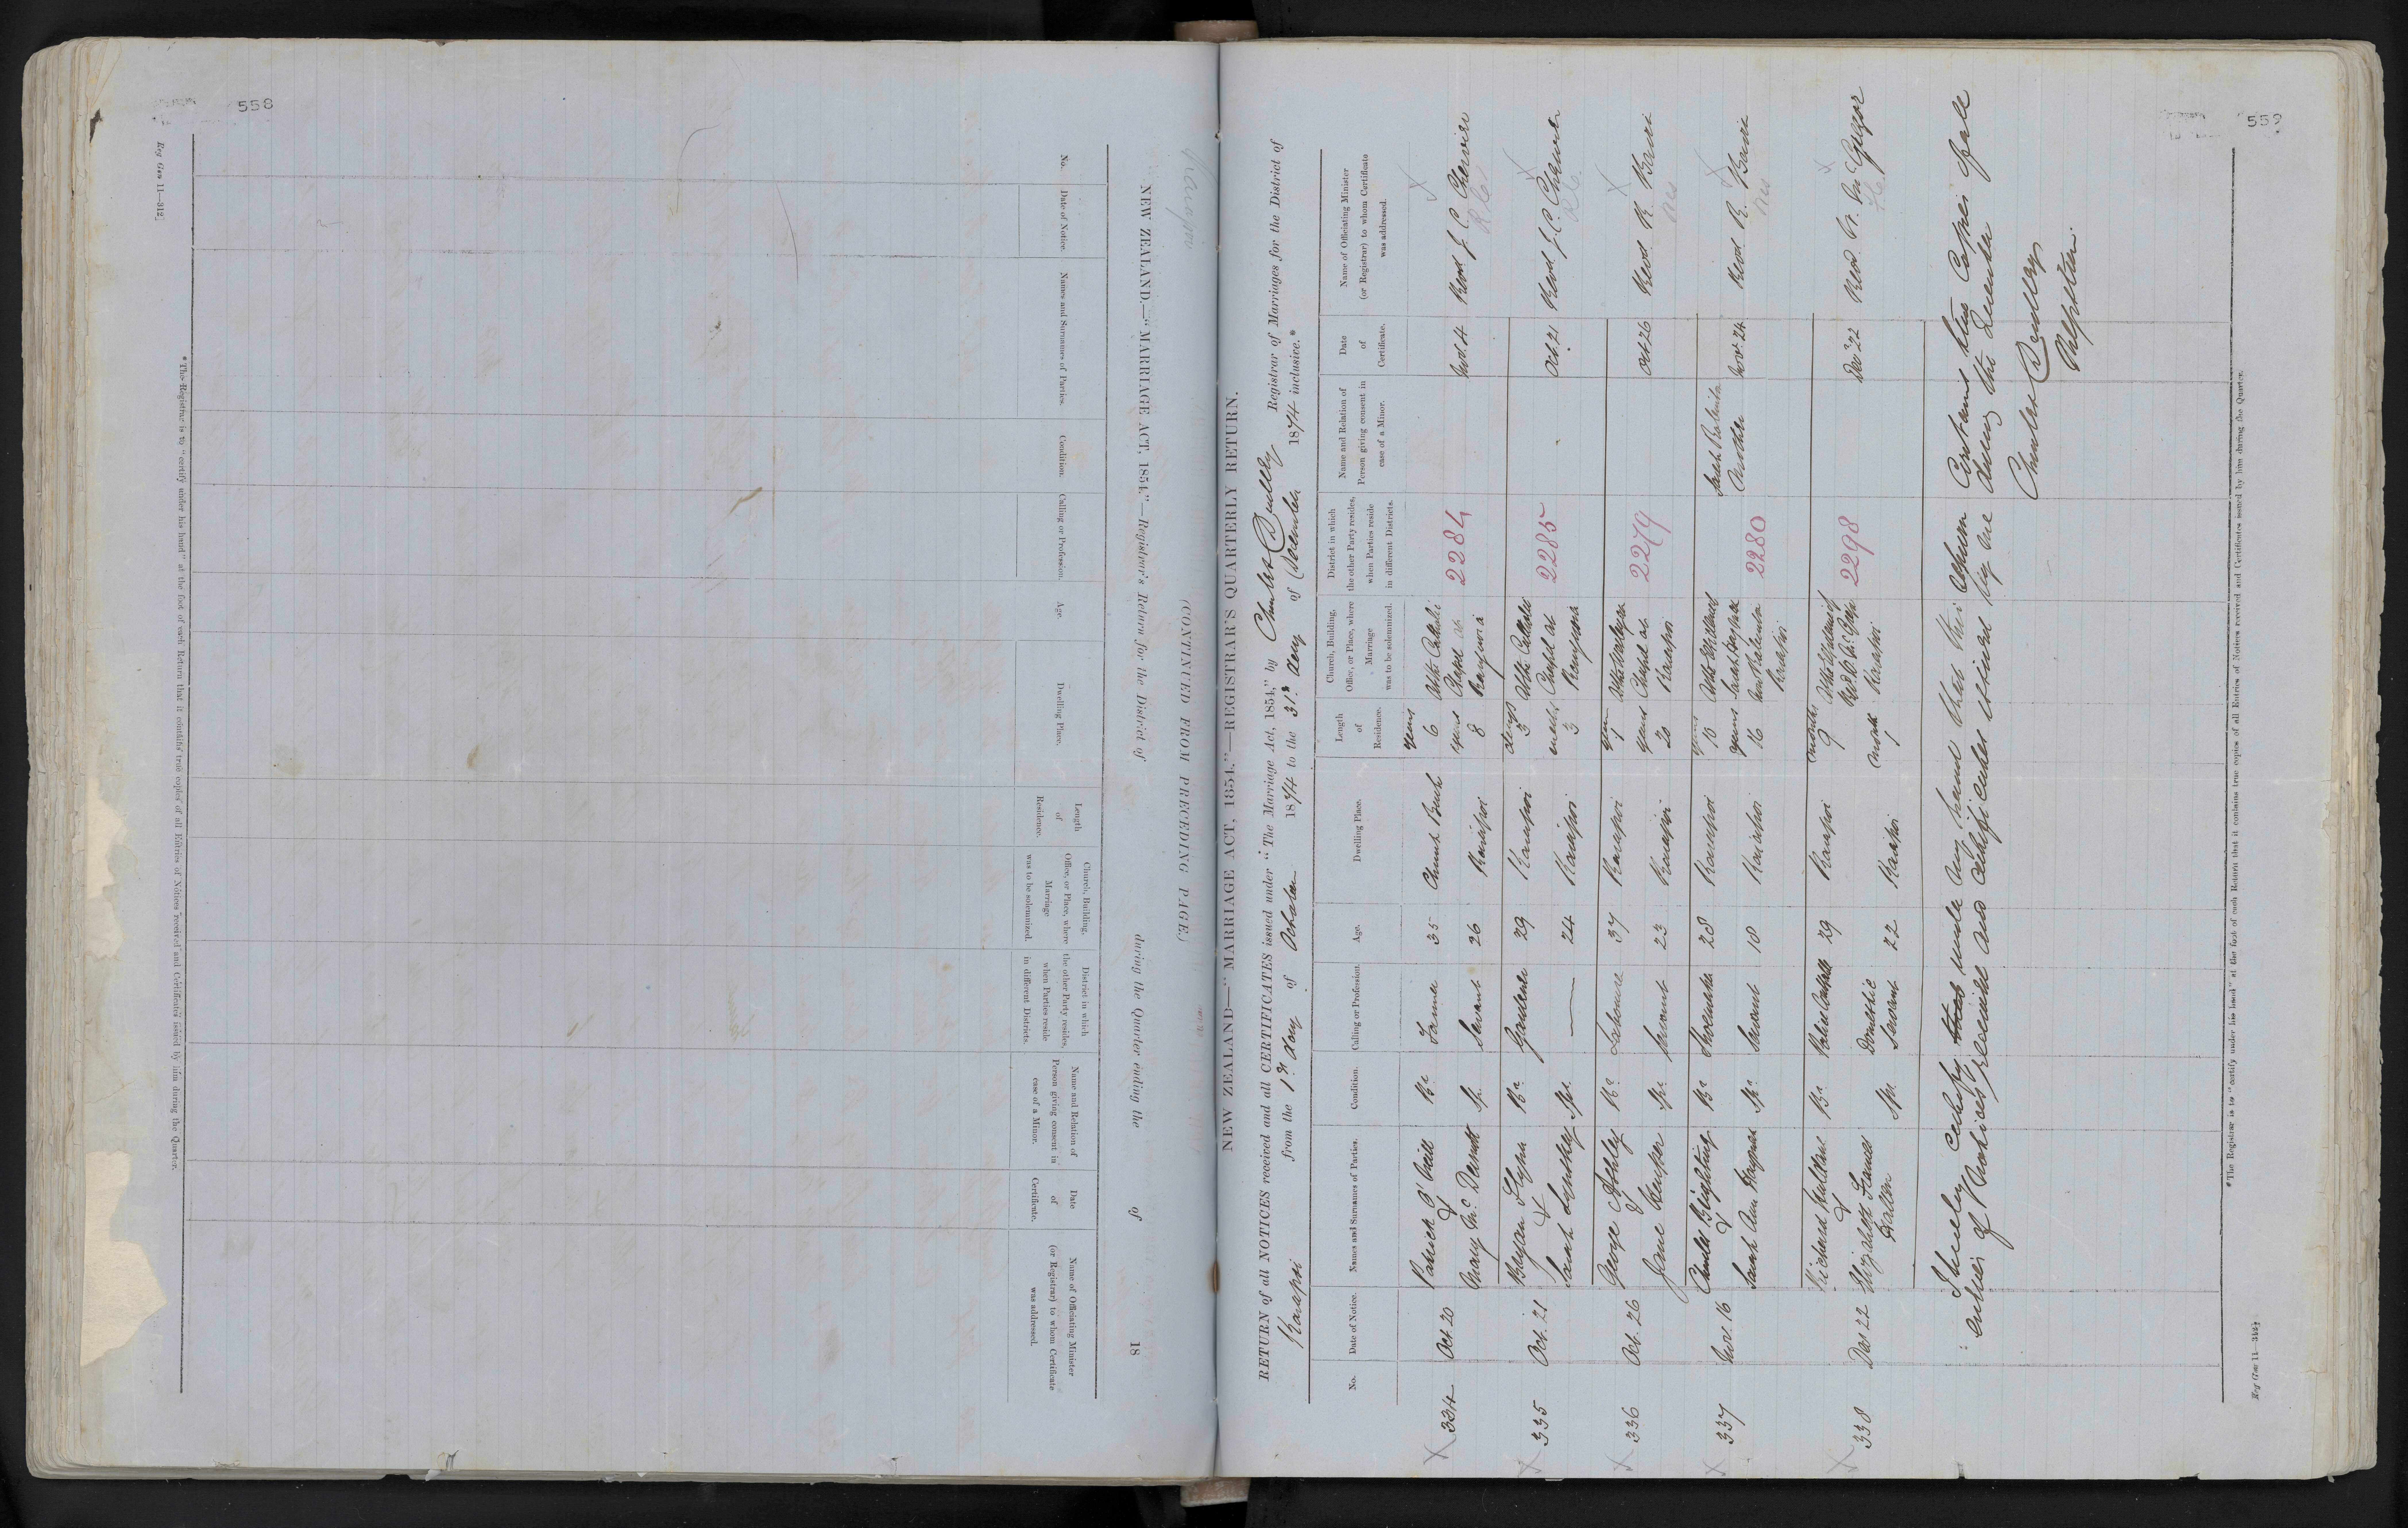 558
Reg Gen 11—312]
NEW ZEALAND.—"MARRIAGE ACT, 1854."—Registrar's Return for the District of during the Quarter ending the of 18
(CONTINUED FROM PRECEDING PAGE.)
No.
Date of Notice.
Names and Surnames of Parties.
Condition.
Calling or Profession.
Age.
Dwelling Place.
Length of Residence.
Church, Building, Office, or Place, where Marriage was to be solemnized.
District in which the other Party resides, when Parties reside in different Districts.
Name and Relation of Person giving consent in case of a Minor.
Date of Certificate.
Name of Officiating Minister (or Registrar) to whom Certificate was addressed.
*The Registrar is to "certify under his hand" at the foot of each Return that it contains true copies of all Entries of Notices received and Certificates issued by him during the Quarter.
559
NEW ZEALAND—"MARRIAGE ACT, 1854."—REGISTRAR'S QUARTERLY RETURN.
RETURN of all NOTICES received and all CERTIFICATES issued under "The Marriage Act, 1854," by Charles Dudley Registrar of Marriages for the District of
Kaiapoi from the 1st day of October 1874 to the 31st day of December 1874 inclusive.*
No.
Date of Notice.
Names and Surnames of Parties.
Condition.
Calling or Profession.
Age.
Dwelling Place.
Length of Residence.
Church, Building, Office, or Place, where Marriage was to be solemnized.
District in which the other Party resides, when Parties reside in different Districts.
Name and Relation of Person giving consent in case of a Minor.
Date of Certificate.
Name of Officiating Minister (or Registrar) to whom Certificate was addressed.
334 Oct 20 Patrick O'Neill Br Farmer 35 Church Bush 6 years At the Catholic Chapel at Rangiora 2284 Nov 4 Revd J. C. Chervier RC
& Mary McDermott Sp. Servant 26 Kaiapoi 8 years
335 Oct 21 Bryan Flynn Br Gardener 29 Kaiapoi 3 days At the Catholic Chapel at Rangiora 2285 Oct. 21 Revd J. C. Chervier RC
& Sarah Sp. — 24 Kaiapoi 3 weeks
336 Oct. 26 George Ashley Br Labourer 37 Kaiapoi 1 year At the Wesleyan Chapel at Kaiapoi 2279 Oct 26 Revd R. Bavin Wes
& Jane Sp. Servant 23 Kaiapoi 20 years
337 Nov. 16 Charles Brightling Br Shoemaker 28 Kaiapoi 10 years Kaiapoi 2280 Sarah Mother Nov. 24 Revd R. Bavin Wes
& Sarah Ann Sp. Servant 18 Kaiapoi 16 years
338 Dec 22 Richard Br. 29 Kaiapoi 9 months Kaiapoi 2298 Dec 22 Revd W. McGregor
& Elizabeth Frances Sp. Domestic Servant 22 Kaiapoi 1 month
I hereby certify under my hand that this return contains true copies of all
entries of Notices received and certificates issued by me during the Quarter
Charles Dudley
Registrar
*The Registrar is to "certify under his hand" at the foot of each Return that it contains true copies of all Entries of Notices received and Certificates issued by him during the Quarter.
Reg Gen 11—344]